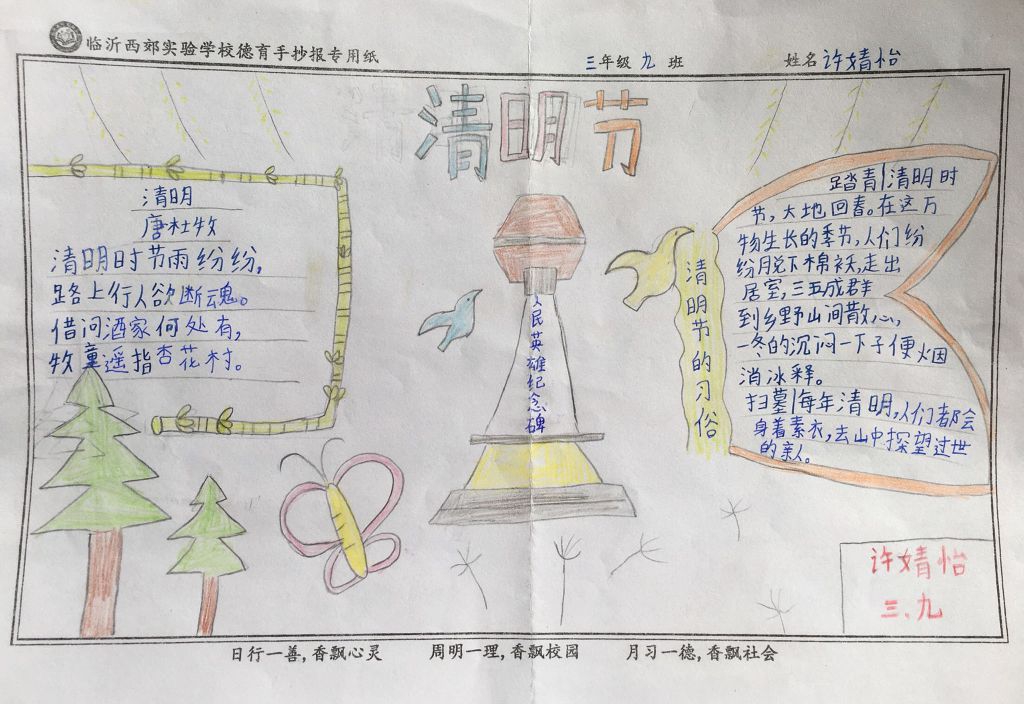 临沂西郊实验学校德育手抄报专用纸
三年级 九 班
姓名 许婧怡
清明节
清明
唐杜牧
清明时节雨纷纷,
路上行人欲断魂。
借问酒家何处有,
牧童遥指杏花村。
人民英雄纪念碑
清明节的习俗
踏青|清明时
节,大地回春。在这万
物生长的季节,人们纷
纷脱下棉袄,走出
居室,三五成群
到乡野山间散心,
一冬的沉闷一下子便烟
消冰释。
扫墓|每年清明,人们都会
身着素衣,去山中探望过世
的亲人。
许婧怡
三.九
日行一善,香飘心灵 周明一理,香飘校园 月习一德,香飘社会